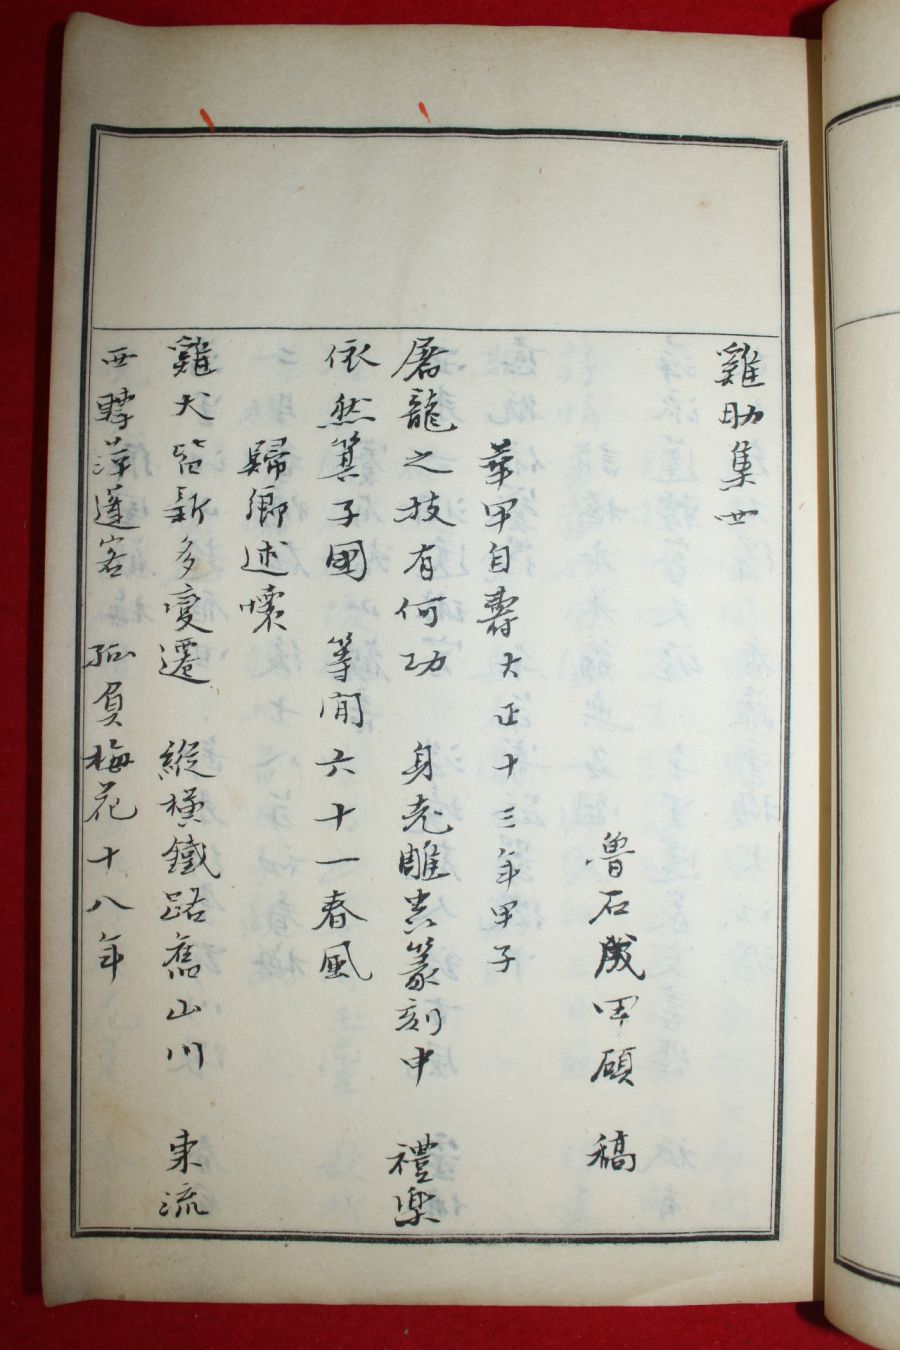 雞肋集
魯石成田碩 稿
華甲自壽大正十三年甲子
屠龍之技有何功 身老雕蟲篆刻中 禮楽
依然箕子國 等閒六十一春風
歸鄉述懷
雞犬皆新多變遷 縱橫鐵路舊山川 東流
西轉萍蓬客 孤負梅花十八年